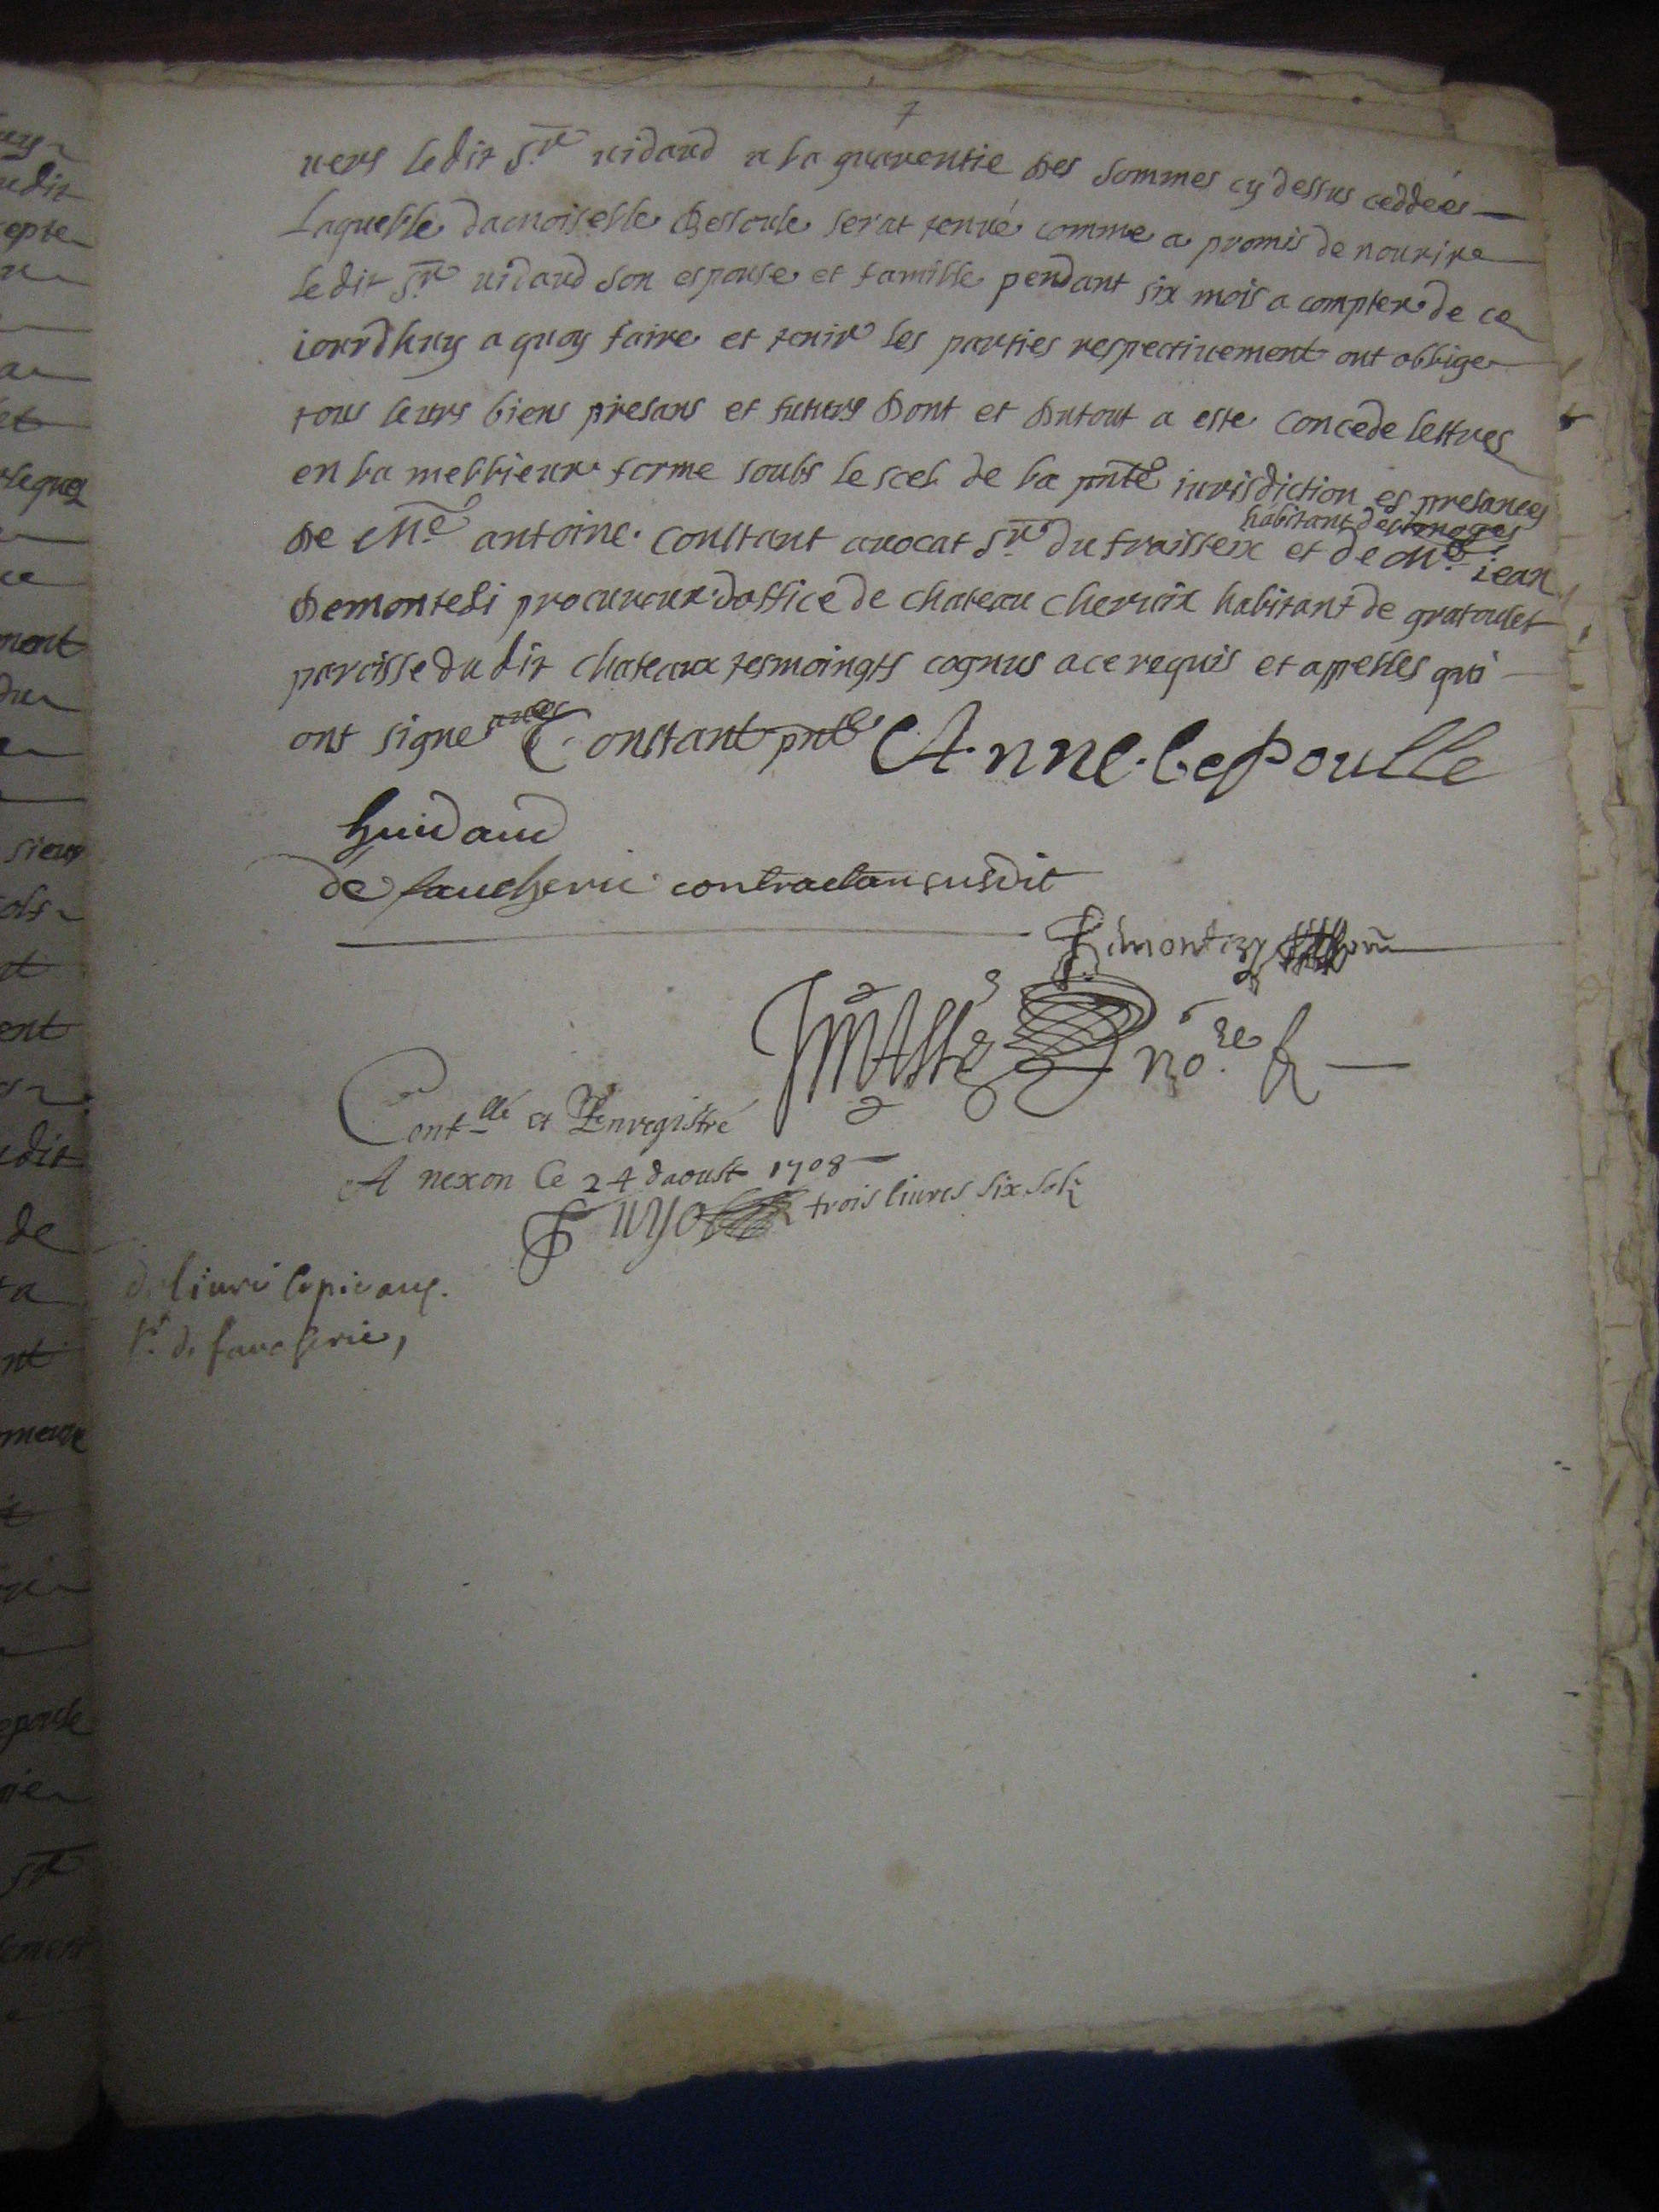 7
vers ledit Sr vidaud a la guarentie des sommes cy dessus ceddées
Laquelle damoiselle deloule serat tenue comme a promis de nourire
ledit Sr vidaud son espouse et famille pendant six mois a compter de ce
iourdhuy a quoy faire et tenir les parties respectivement ont obblige
tous leurs biens presans et futurs dont et dutout a este concede lettres
en la mellieure forme soubs le scel de la pnte iurisdiction es presances
habitant de limoges
de Me antoine constant avocat Sr du fraisseix et de Me iean
demontesi procureur doffice de chateau chervix habitant de gratoulet
paroisse du dit chateaux tesmoingts cognus a ce requis et appelles qui
ont signe Constant pnt Anne lepoulle
huidaud
de faucherie contractan susdit
Demontezy
no.re R
Cont.llé et Enregistré
A nexon le 24 daoust 1708
trois livres six sols
delivré copie aud.
Sr de faucherie,